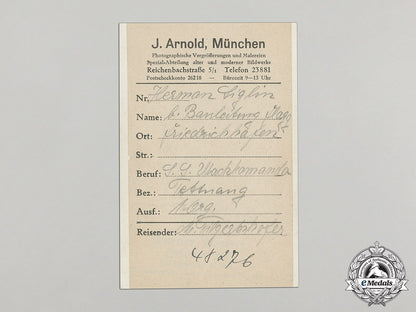 J. Arnold, München
Photographische Vergrößerungen und Malereien
Spezial-Abteilung alter und moderner Bildwerke
Reichenbachstraße 5/I Telefon 23881
Postscheckkonto 26210 — Bürozeit 9–13 Uhr
Nr. Herman Liglin
Name: b. Bauleitung
Ort: Friedrichshafen
Str.:
Beruf: S.S. Wachkomando
Bez.: Tettnang
Ausf.:
Reisender:
48276
eMedals